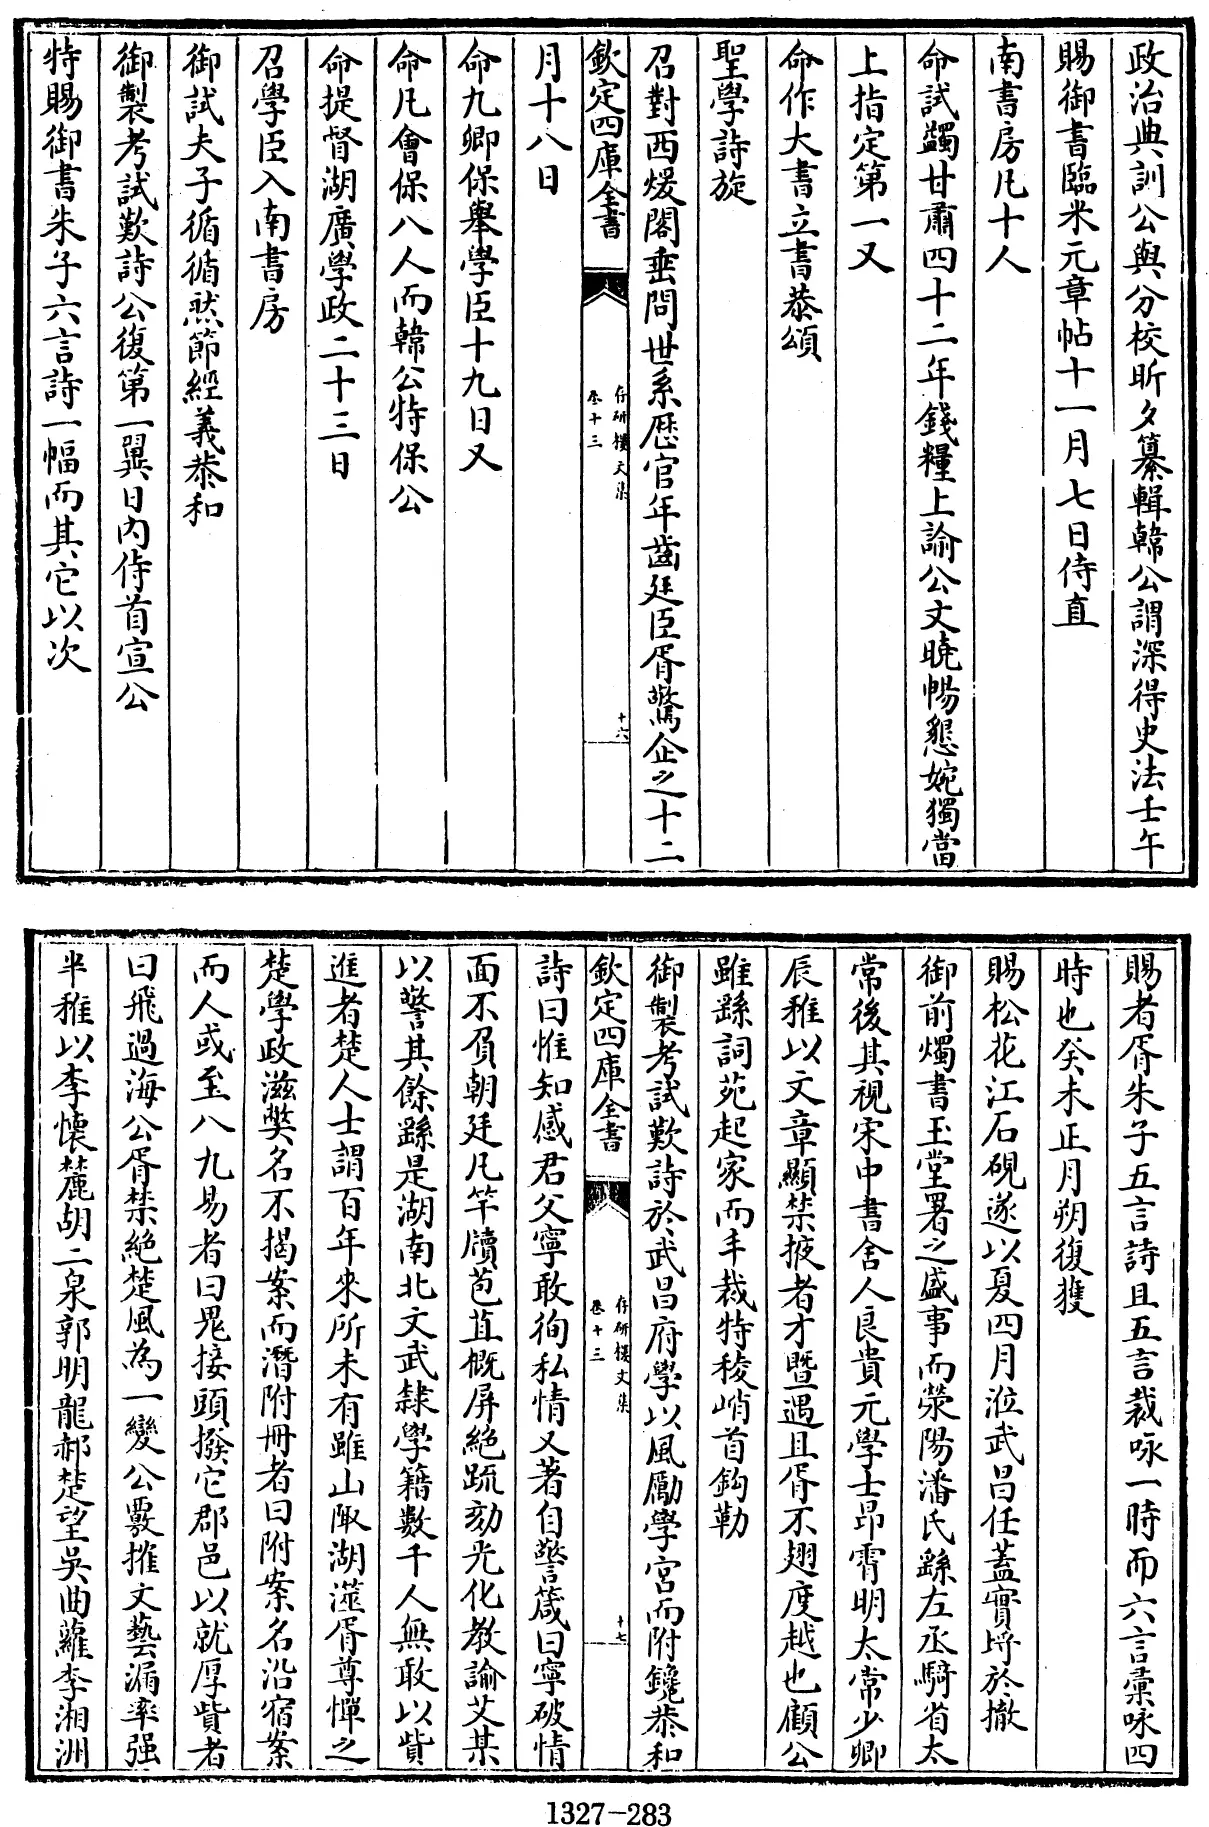 政治典訓公與分校昕夕纂輯韓公謂深得史法壬午
賜御書臨米元章帖十一月七日侍直
南書房凡十人
命試蠲甘肅四十二年錢糧上諭公文曉暢懇婉獨當
上指定第一又
命作大書立書恭頌
聖學詩旋
召對西煖閣垂問世系歴官年齒廷臣胥驚企之十二
欽定四庫全書
存研樓文集
卷十三
十六
月十八日
命九卿保舉學臣十九日又
命凡會保八人而韓公特保公
命提督湖廣學政二十三日
召學臣入南書房
御試夫子循循然節經義恭和
御製考試歎詩公復第一翼日内侍首宣公
特賜御書朱子六言詩一幅而其它以次
賜者胥朱子五言詩且五言裁咏一時而六言彙咏四
時也癸未正月朔復獲
賜松花江石硯遂以夏四月涖武昌任蓋實埒於撤
御前燭書玉堂署之盛事而滎陽潘氏繇左丞騎省太
常後其視宋中書舍人良貴元學士昂霄明太常少卿
辰稚以文章顯禁掖者才暨遇且胥不翅度越也顧公
雖繇詞苑起家而丰裁特稜峭首鈎勒
御製考試歎詩於武昌府學以風勵學宮而附鑱恭和
欽定四庫全書
存研樓文集
卷十三
十七
詩曰惟知感君父寧敢徇私情又著自警箴曰寧破情
面不負朝廷凡竿牘苞苴概屏絶疏劾光化教諭艾某
以警其餘繇是湖南北文武隸學籍數千人無敢以貲
進者楚人士謂百年來所未有雖山陬湖澨胥尊憚之
楚學政滋獘名不揭案而潛附冊者曰附案名沿宿案
而人或至八九易者曰晁接頭撥它郡邑以就厚貲者
曰飛過海公胥禁絶楚風為一變公覈搉文藝漏率强
半稚以李懷麓胡二泉郭明龍郝楚望吳曲蘿李湘洲
1327-283